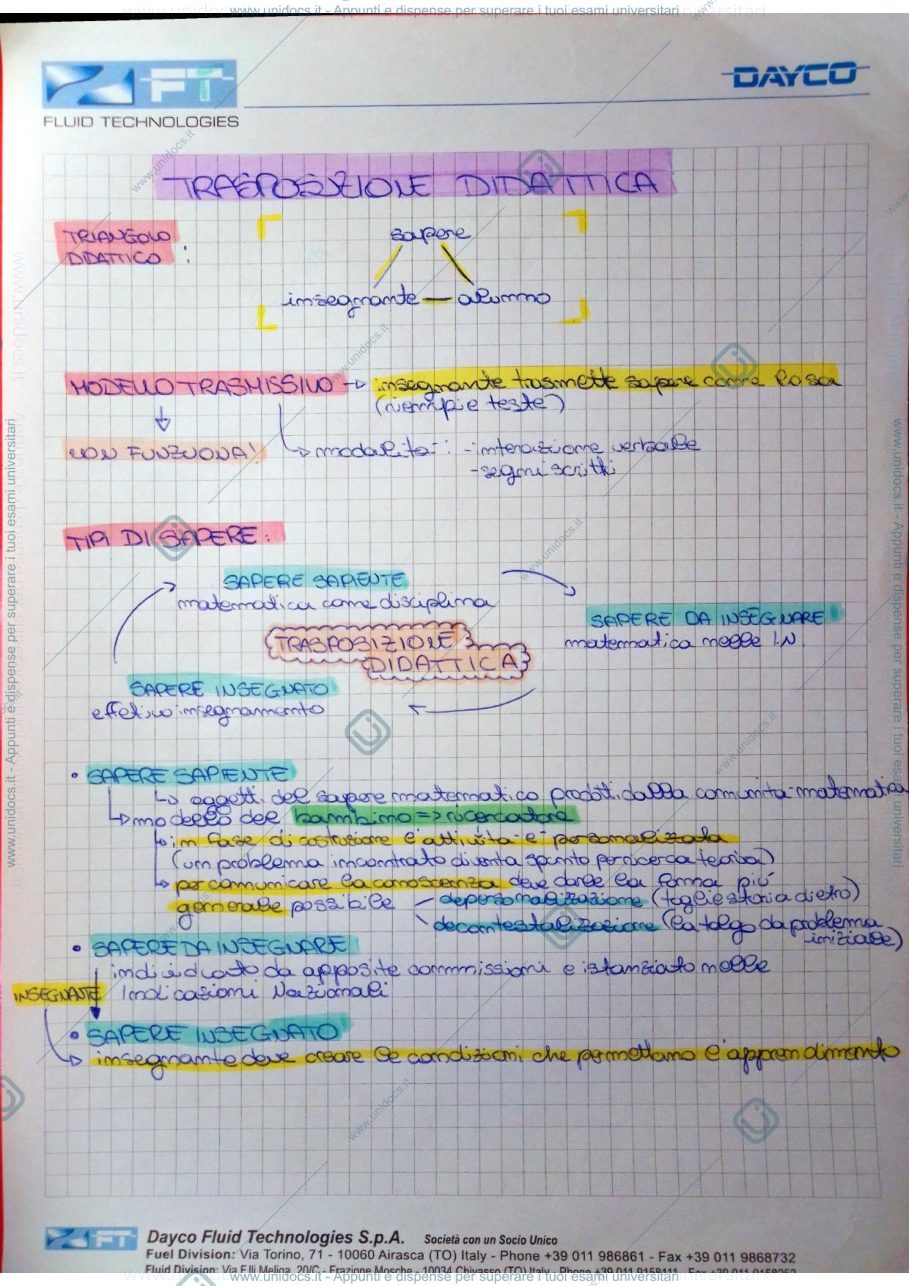 www.unidocs.it - Appunti e dispense per superare i tuoi esami universitari
FT
FLUID TECHNOLOGIES
DAYCO
TRASPOSIZIONE DIDATTICA
TRIANGOLO
DIDATTICO :
sapere
insegnante — alunno
MODELLO TRASMISSIVO → insegnante trasmette sapere come cosa
(riempie teste)
NON FUNZIONA!
modalità: - interazione verbale
- segni scritti
TIPI DI SAPERE:
SAPERE SAPIENTE
matematica come disciplina
SAPERE DA INSEGNARE
matematica nelle I.N
TRASPOSIZIONE
DIDATTICA
SAPERE INSEGNATO
effettivo insegnamento
• SAPERE SAPIENTE
↳ oggetti del sapere matematico prodotti dalla comunità matematica
↳ modello del bambino => ricercatore
↳ in fase di costruzione l'attività è personalizzata
(un problema incontrato diventa spunto per ricerca teorica)
↳ per comunicare la conoscenza deve darle la forma più
generale possibile - depersonalizzazione (toglie storia dietro)
- decontestalizzazione (la tolgo da problema
iniziale)
• SAPERE DA INSEGNARE
individuato da apposite commissioni e istanziato nelle
INSEGNANTE Indicazioni Nazionali
• SAPERE INSEGNATO
↳ insegnante deve creare le condizioni che permettano l'apprendimento
FT Dayco Fluid Technologies S.p.A. Società con un Socio Unico
Fuel Division: Via Torino, 71 - 10060 Airasca (TO) Italy - Phone +39 011 986861 - Fax +39 011 9868732
Fluid Division: Via F.lli Melina, 20/C - Frazione Mosche - 10034 Chivasso (TO) Italy - Phone +39 011 9158111 - Fax +39 011 9158252
www.unidocs.it - Appunti e dispense per superare i tuoi esami universitari